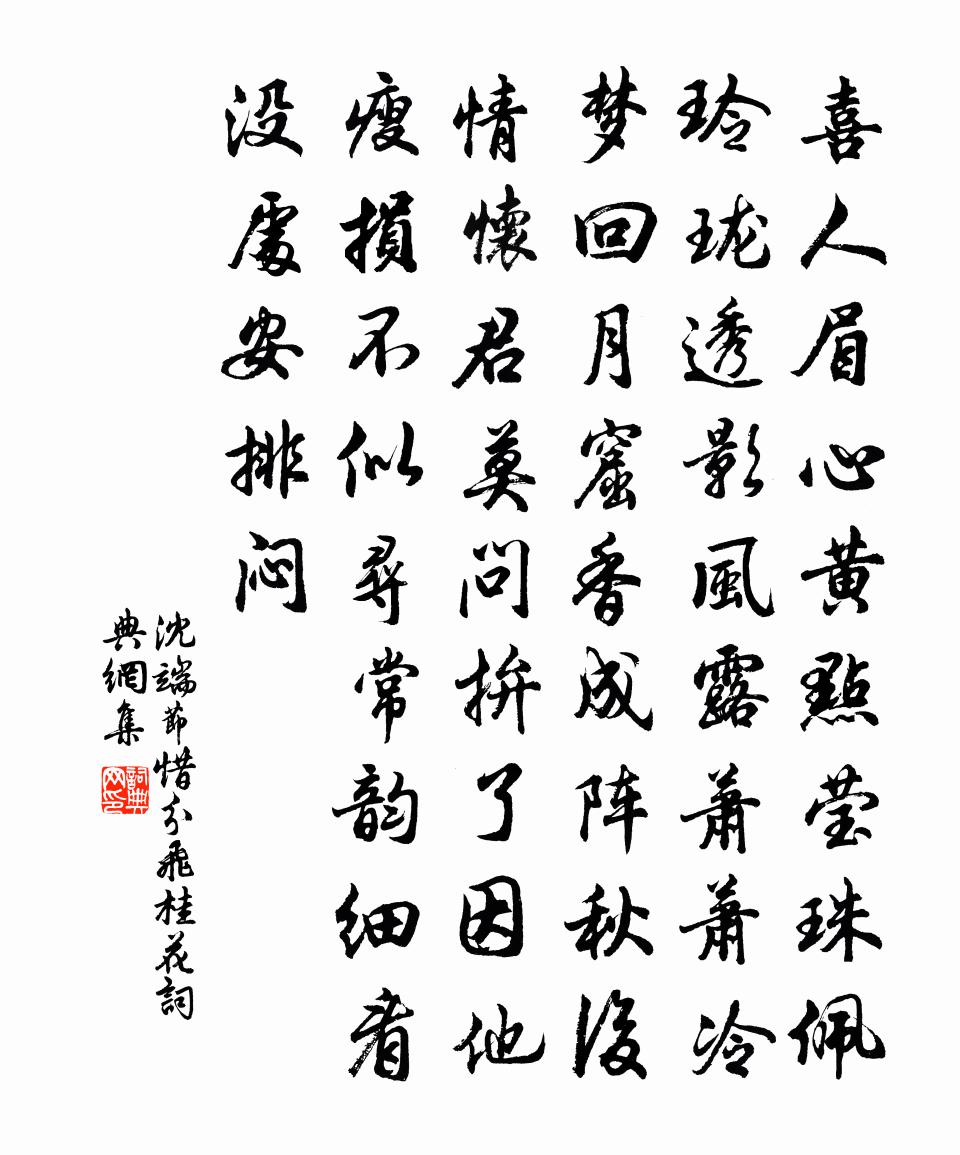 喜人眉心黄點莹珠佩
玲珑透影風露蕭蕭冷
梦回月窟香成阵秋後
情懷君莫问拚了因他
瘦損不似尋常韵细看
没處安排闷
沈端节惜分飛桂花詞
典網集
詞典网印